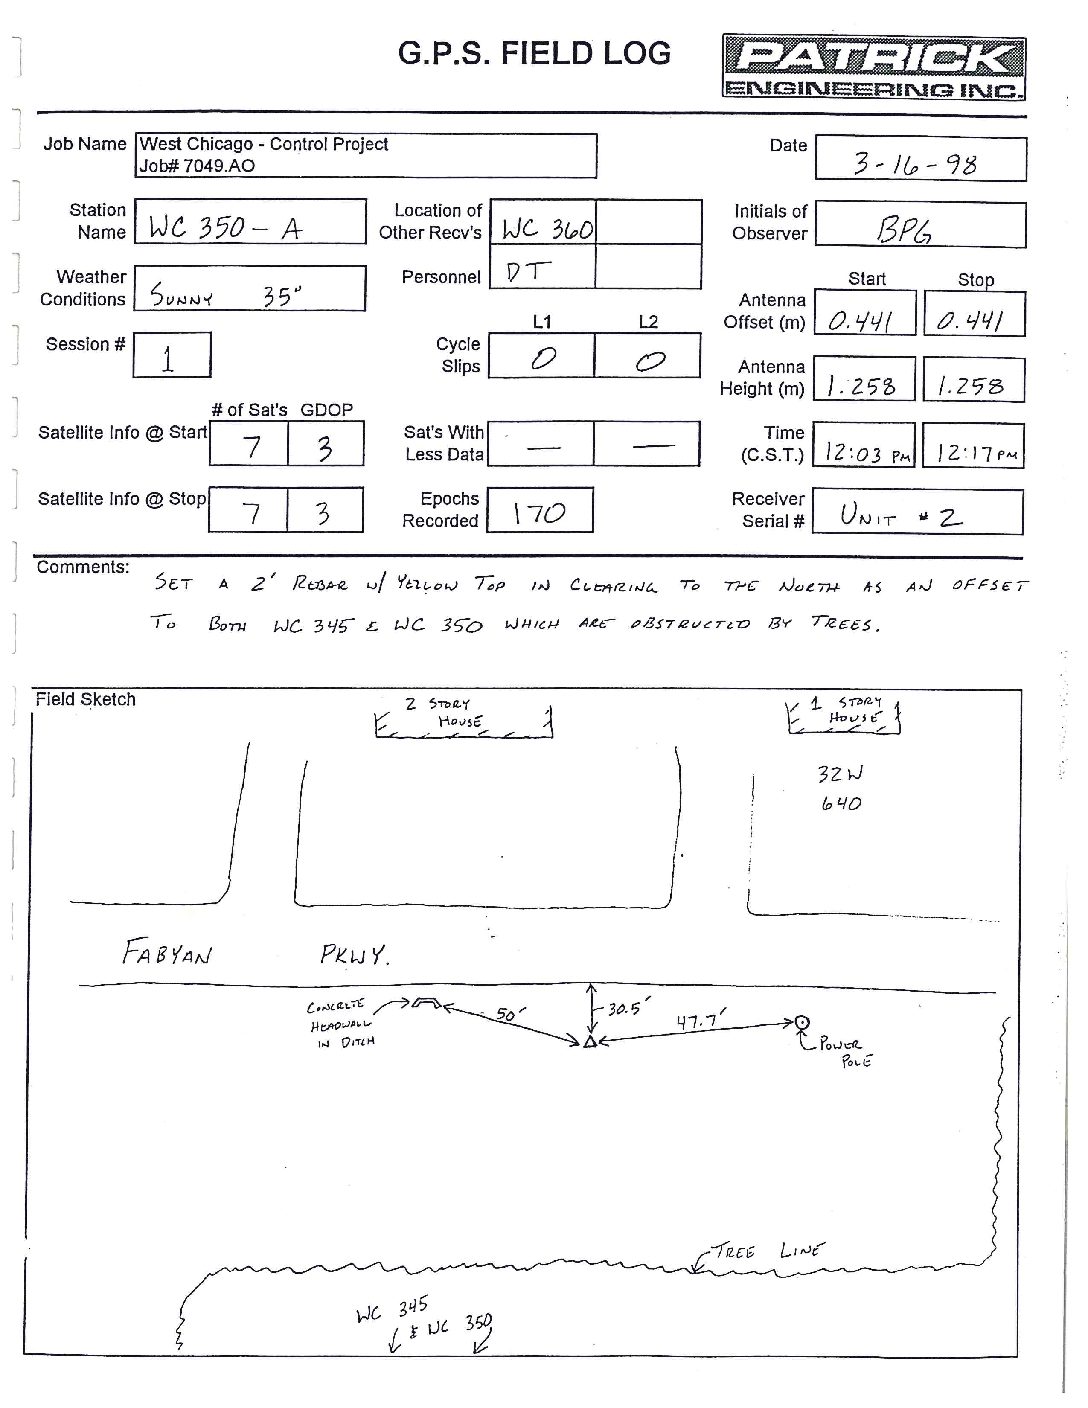 G.P.S. FIELD LOG
PATRICK
ENGINEERING INC.
Job Name West Chicago - Control Project
Job# 7049.AO
Date 3-16-98
Station Name WC 350 - A
Location of Other Recv's WC 360
Initials of Observer BPG
Weather Conditions SUNNY 35°
Personnel DT
Start Stop
Antenna Offset (m) 0.441 0.441
Session # 1
L1 L2
Cycle Slips 0 0
Antenna Height (m) 1.258 1.258
# of Sat's GDOP
Satellite Info @ Start 7 3
Sat's With Less Data — —
Time (C.S.T.) 12:03 PM 12:17 PM
Satellite Info @ Stop 7 3
Epochs Recorded 170
Receiver Serial # UNIT #2
Comments:
SET A 2' REBAR W/ YELLOW TOP IN CLEARING TO THE NORTH AS AN OFFSET
TO BOTH WC 345 & WC 350 WHICH ARE OBSTRUCTED BY TREES.
Field Sketch
2 STORY
HOUSE
1 STORY
HOUSE
32W
640
FABYAN PKWY.
CONCRETE
HEADWALL
IN DITCH
50'
30.5'
47.7'
POWER
POLE
TREE LINE
WC 345
& WC 350